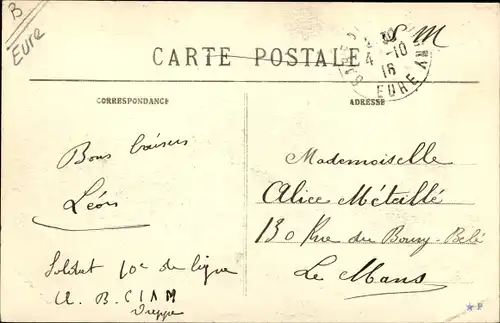 B
Eure
S M
CARTE POSTALE
4 -10
16
EURE
CORRESPONDANCE
ADRESSE
Bons baisers
Léon
Soldat 10e de ligne
C I A M
Dieppe
Mademoiselle
Alice Métaillé
130 Rue du Bourg-Belé
Le Mans